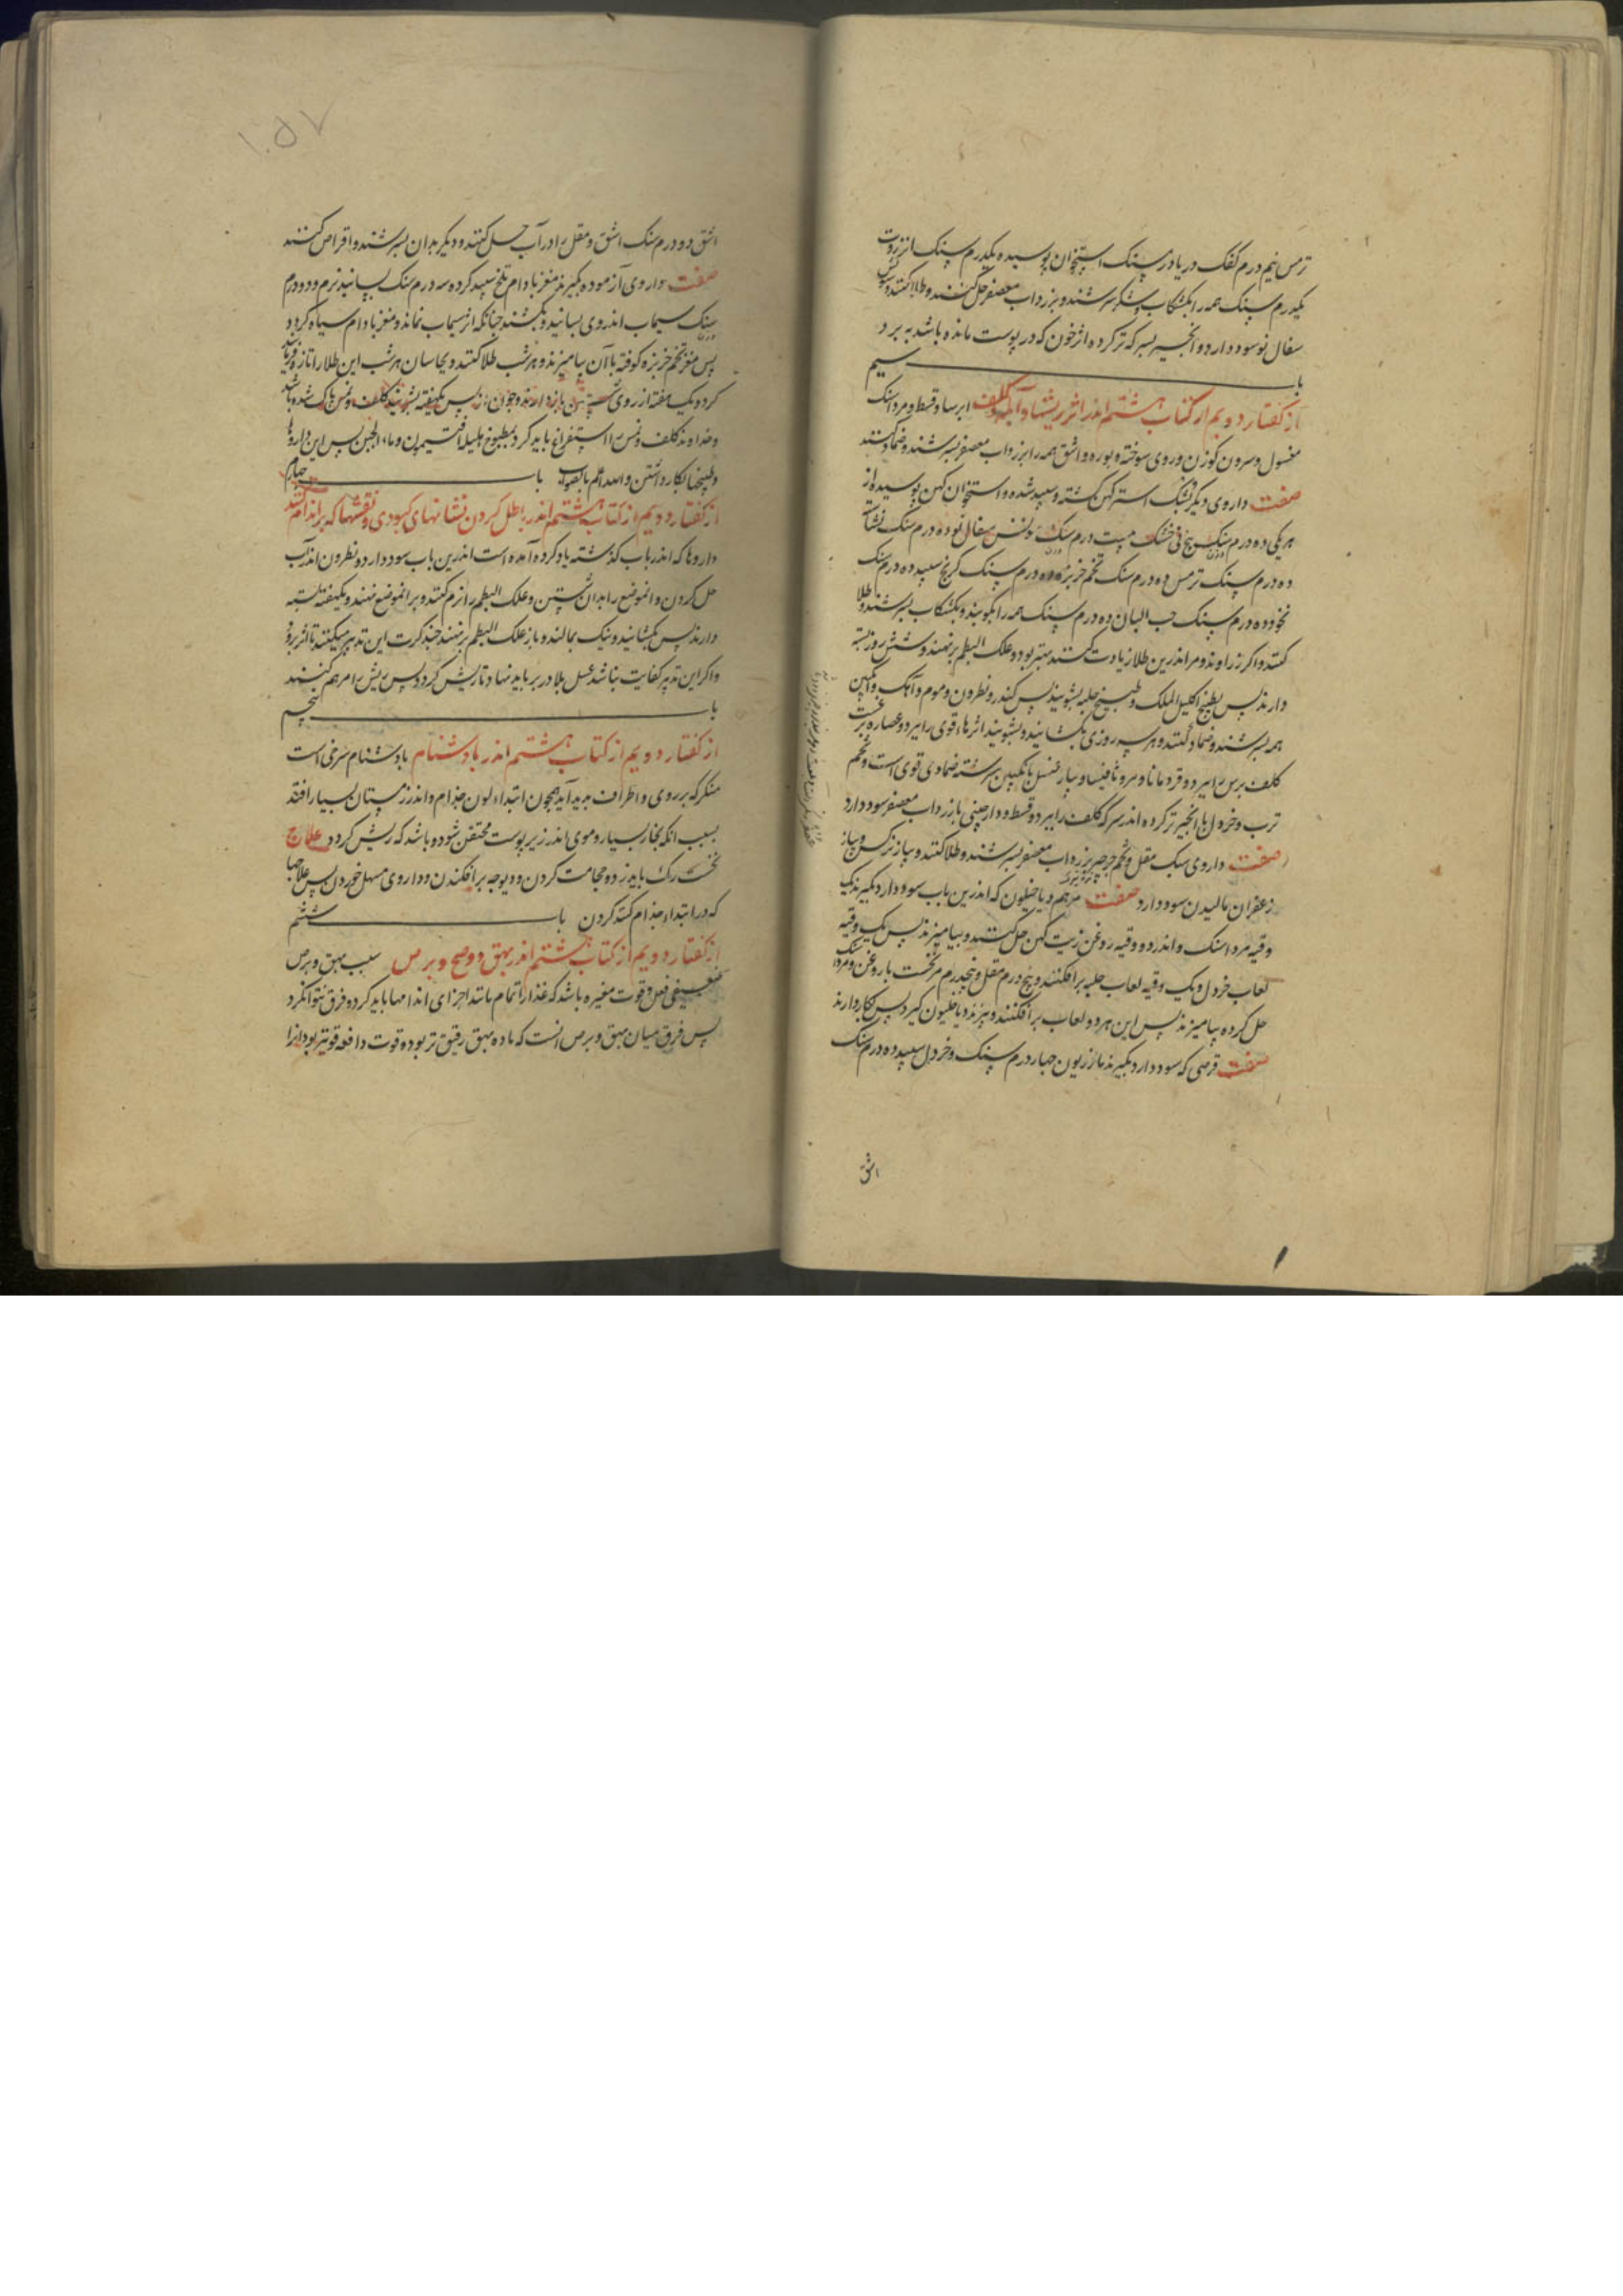 ترمس نیم درم کفک دریا درم سنک استخوان پوسیده یکدرم سنک انزروت
یکدرم سنک همه را بکشکاب بسرشند و بزرداب معصفر حل کنند و طلا کنند
سفال نو سود دارد و انجیر بسرکه تر کرده اثر خون که در پوست مانده باشد ببرد
باب سیم
از کفتار دویم از کتاب هشتم اندر اثر ریشها و آبله و کلف ایرسا و قسط و مرداسنک
مغسول و سرون کوزن و روی سوخته و بوره و اشق همه را بزرداب معصفر بسرشند و ضماد کنند
صفت داروی دیکر پشک استر کهن کشته و سپید شده و استخوان کهن پوسیده از
هریکی ده درم سنک بیخ نی خشک بیست درم سنک سفال نو ده درم سنک نشاسته
ده درم سنک ترمس ده درم سنک تخم خربزه ده درم سنک کرنج سپید ده درم سنک
نخود ده درم سنک حب البان ده درم سنک همه را بکوبند و بکشکاب بسرشند و طلا
کنند و اکر زراوند و مر اندرین طلا زیادت کنند بهتر بود و علک البطم برنهند و شش روز بسته
دارند پس بطبیخ اکلیل الملک و طبیخ حلبه بشویند پس کندر و نطرون و موم و آهک و انکبین
همه بسرشند و ضماد کنند و هر سه روزی بکشایند و بشویند اثرهاء قوی را ببرد و عصاره
کلف برس را ببرد و قردمانا و مرو ثافیسا و پیاز عنصل بانکبین سرشته ضمادی قوی است و تخم
ترب و خردل با انجیر تر کرده اندر سرکه کلف را ببرد و قسط و دارچینی بازرداب معصفر سود دارد
صفت داروی سبک مقل و تخم جرجیر بزرداب معصفر بسرشند و طلا کنند و پیاز نرکس و پیاز
زعفران مالیدن سود دارد صفت مرهم دیاخیلون که اندرین باب سود دارد بکیرند یک
وقیه مرداسنک و اندر دو وقیه روغن زیت کهن حل کنند و بیامیزند پس یک وقیه
لعاب خردل و یک وقیه لعاب حلبه برافکنند و پنج درم مقل و پنجدرم مر نخست با روغن و مرداسنک
حل کرده بیامیزند پس این هر دو لعاب برافکنند و بپزند دیاخلیون کیرد پس بکار دارند
صفت قرصی که سود دارد بکیرند مازریون چهار درم سنک و خردل سپید ده درم سنک
اشق
۱۰۵۷
اشق دو درم سنک اشق و مقل را در آب حل کنند و دیکر بدان بسرشند و اقراص کنند
صفت داروی آزموده بکیرند مغز بادام تلخ سپید کرده سه درم سنک بسایند نرم و دو درم
سنک سیماب اندروی بسایند و بکشند چنانکه اثر سیماب نماند و مغز بادام سیاه کردد
پس مغز تخم خربزه کوفته با آن بیامیزند و هر شب طلا کنند و یکسان هر شب این طلا را تازه
کرد و یک هفته از روی شستن باز دارند و چون پس یکهفته بشویند کلف و نمش پاک شده باشد
و خداوند کلف و نمش را استفراغ باید کرد بمطبوخ هلیله افتیمون و ماء الجبن پس این داروها
و طبیخها بکار داشتن و الله اعلم بالصواب باب چهارم
از کفتار دویم از کتاب هشتم اندر باطل کردن نشانهای کبودی و نقشها که بر اندام کنند
داروها که اندر باب کذشته یاد کرده آمده است اندرین باب سود دارد و نطرون اندر آب
حل کردن و انموضع را بدان شستن و علک البطم را نرم کنند و بر انموضع نهند و یکهفته بسته
دارند پس بکشایند و نیک بمالند و باز علک البطم برنهند چند کرت این تدبیر میکنند تا اثر برود
و اکر این تدبیر کفایت نباشد عسل بلادر بر باید نهاد تا ریش کردد پس ریش را مرهم کنند
باب پنجم
از کفتار دویم از کتاب هشتم اندر بادشنام بادشنام سرخی است
منکر که بر روی و اطراف پدید آید همچون ابتداء لون جذام و اندر زمستان بسیار افتد
بسبب انکه بخار بسیار و موی اندر زیر پوست محتقن شود و باشد که ریش کردد علاج
نخست رک باید زد و حجامت کردن و دیوچه برافکندن و داروی مسهل خوردن پس علاجها
که در ابتداء جذام کنند کردن باب ششم
از کفتار دویم از کتاب هشتم اندر بهق و وضح و برص سبب بهق و برص
ضعیفی فعل قوت مغیره باشد که غذا را تمام مانند اجزای اندامها باید کرد و فرق نتواند کرد
پس فرق میان بهق و برص انست که ماده بهق رقیق تر بود و قوت دافعه قویتر بود از ا